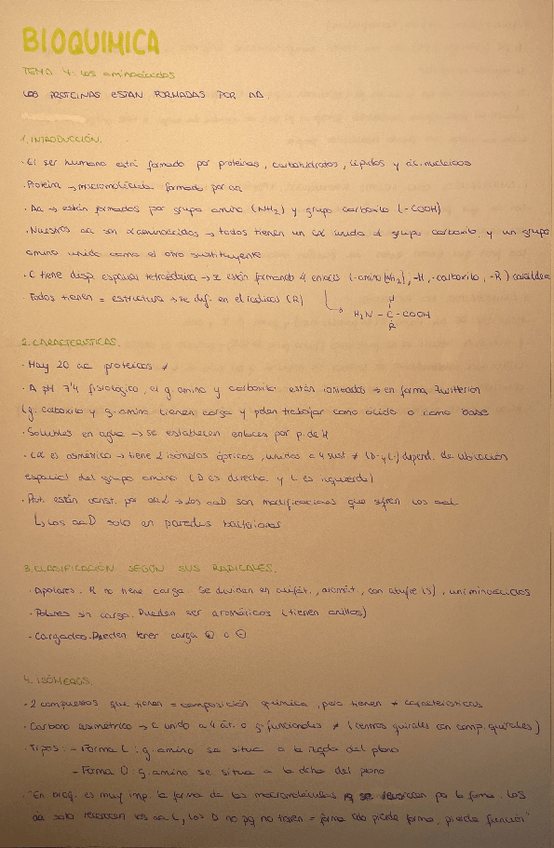 BIOQUIMICA
TEMA 4: Los aminoácidos
LAS PROTEINAS ESTAN FORMADAS POR AA.
1. INTRODUCCIÓN.
· El ser humano está formado por proteínas, carbohidratos, lípidos y ác. nucleicos
· Proteína → macromolécula formada por aa
· Aa → están formados por grupo amino (NH₂) y grupo carboxilo (-COOH)
· Nuestros aa son α aminoácidos → todos tienen un Cα unido al grupo carboxilo y un grupo
amino unido como el otro sustituyente
· C tiene disp. espacial tetraédrica → se están formando 4 enlaces (-amino(NH₂), -H, -carboxilo, -R)
· Todos tienen = estructura → se dif. en el radical (R)
H
H₂N - C - COOH
R
2. CARACTERÍSTICAS.
· Hay 20 aa proteicos ≠
· A pH 7'4 fisiológico, el g. amino y carboxilo están ionizados → en forma Zwitterion
(g. carboxilo y g. amino tienen carga y pueden trabajar como ácido o como base
· Solubles en agua → se establecen enlaces por p. de H
· Cα es asimétrico → tiene 2 isómeros ópticos, unidos a 4 sust. ≠ (D- y L-) depend. de ubicación
espacial del grupo amino (D es derecha y L es izquierda)
· Prot. están const. por aa L → los aa D son modificaciones que sufren los aa L
↳ Los aa D solo en paredes bacterianas
3. CLASIFICACIÓN SEGÚN SUS RADICALES.
· Apolares. R no tiene carga. Se dividen en alifát., aromát., con azufre (S), iminoácidos
· Polares sin carga. Pueden ser aromáticos (tienen anillos)
· Cargados. Pueden tener carga ⊕ o ⊖
4. ISÓMEROS.
· 2 compuestos que tienen = composición química, pero tienen ≠ características
· Carbono asimétrico → C unido a 4 át. o g. funcionales ≠ (centros quirales con comp. quirales)
· Tipos: - Forma L: g. amino se situa a la izqda del plano
- Forma D: g. amino se situa a la dcha del plano
· "En bioq. es muy imp. la forma de las macromoléculas pq se reconocen por la forma. Los
aa solo reconocen los aa L, los D no pq no tienen = forma pierde forma, pierde función"